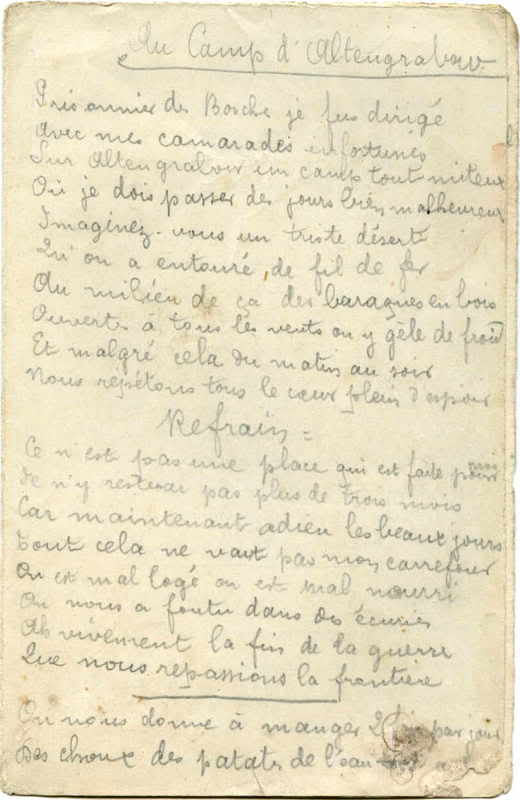 Au Camp d'Altengrabow
Prisonnier des Bosche je fus dirigé
Avec mes camarades infortunés
Sur Altengrabow un camp tout miteux
Où je dois passer des jours bien malheureux
Imaginez-vous un triste désert
Qu'on a entouré de fil de fer
Au milieu de ça des baraques en bois
Ouverts à tous les vents on y gèle de froid
Et malgré cela du matin au soir
Nous répétons tous le cœur plein d'espoir
Refrain =
Ce n'est pas une place qui est faite pour moi
Je n'y resterai pas plus de trois mois
Car maintenant adieu les beaux jours
Tout cela ne vaut pas mon carrefour
On est mal logé on est mal nourri
On nous a foutu dans des écuries
Ah vivement la fin de la guerre
Que nous repassions la frontière
On nous donne à manger 2 par jour
Des choux des patates de l'eau